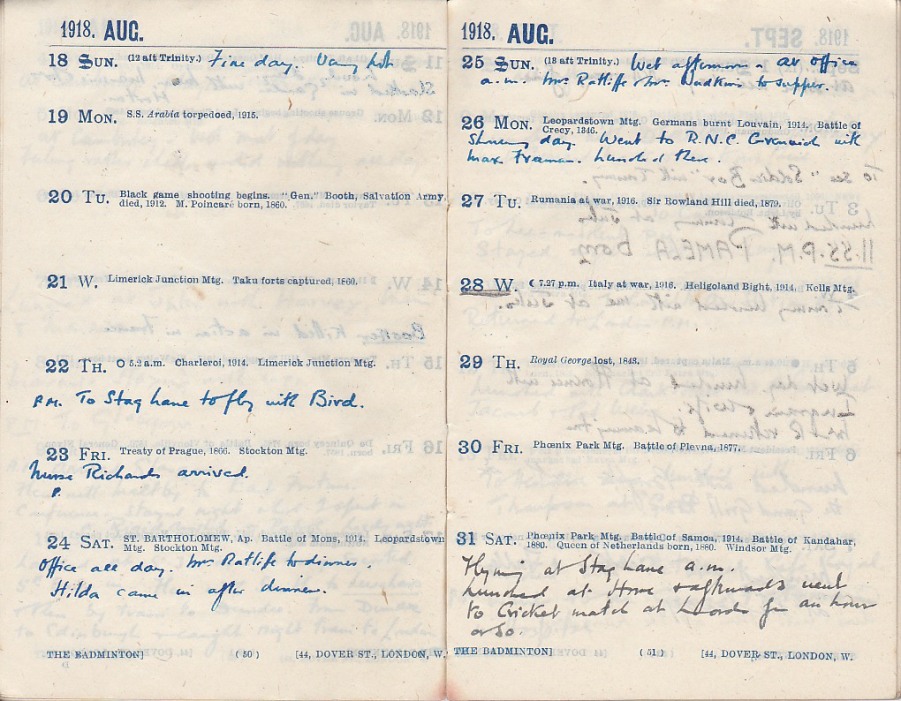 1918. AUG.
18 SUN. (12 aft Trinity.) Fine day. Very hot
19 MON. S.S. Arabia torpedoed, 1915.
20 TU. Black game shooting begins. "Gen." Booth, Salvation Army,
died, 1912. M. Poincaré born, 1860.
21 W. Limerick Junction Mtg. Taku forts captured, 1860.
22 TH. O 5.2 a.m. Charleroi, 1914. Limerick Junction Mtg.
P.M. To Stag Lane to fly with Bird.
23 FRI. Treaty of Prague, 1866. Stockton Mtg.
Nurse Richards arrived.
P.
24 SAT. ST. BARTHOLOMEW, Ap. Battle of Mons, 1914. Leopardstown
Mtg. Stockton Mtg.
Office all day. Mrs Ratliffe to dinner.
Hilda came in after dinner.
THE BADMINTON] (50) [44, DOVER ST., LONDON, W.
1918. AUG.
25 SUN. (13 aft Trinity.) Wet afternoon at office
a.m. Mrs. Ratliffe & Mr. Watkins to supper.
26 MON. Leopardstown Mtg. Germans burnt Louvain, 1914. Battle of
Crecy, 1346.
Showery day. Went to R.N.C. Greenwich with
Max. Lunched there.
27 TU. Rumania at war, 1916. Sir Rowland Hill died, 1879.
28 W. ☾ 7.27 p.m. Italy at war, 1916. Heligoland Bight, 1914. Kells Mtg.
29 TH. Royal George lost, 1848.
30 FRI. Phœnix Park Mtg. Battle of Plevna, 1877.
31 SAT. Phœnix Park Mtg. Battle of Samoa, 1914. Battle of Kandahar,
1880. Queen of Netherlands born, 1880. Windsor Mtg.
Flying at Stag Lane a.m.
Lunched at Home & afterwards went
to Cricket match at Lords for an hour
or so.
THE BADMINTON] (51) [44, DOVER ST., LONDON, W.